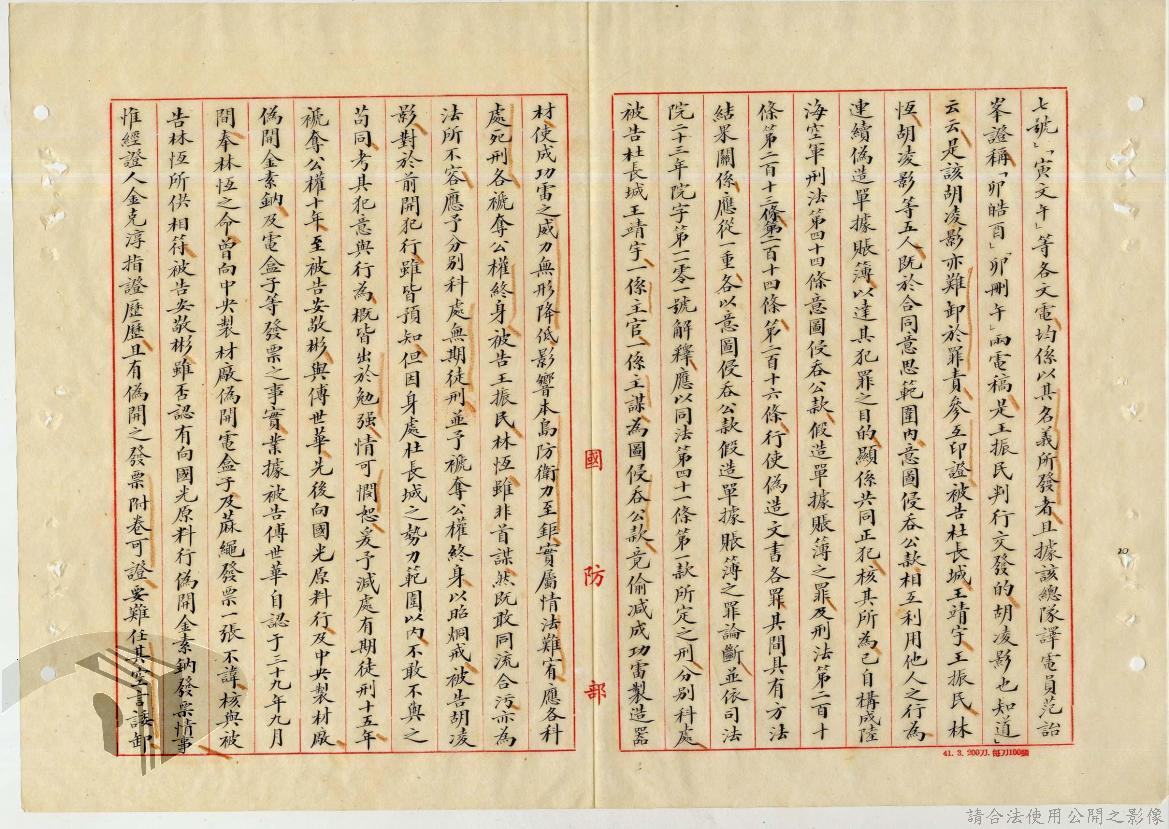 七號」「寅文午」等各文電均係以其名義所發者且據該總隊譯電員范詒
峯證稱「卯皓酉」「卯刪午」兩電稿是王振民判行交發的胡凌影也知道」
云云是該胡凌影亦難卸於罪責參互印證被告杜長城王靖宇王振民林
恆胡凌影等五人既於合同意思範圍內意圖侵吞公款相互利用他人之行為
連續偽造單據賬簿以達其犯罪之目的顯係共同正犯核其所為已自構成陸
海空軍刑法第四十四條意圖侵吞公款假造單據賬簿之罪及刑法第二百十
條第二百十三條第二百十四條第二百十六條行使偽造文書各罪其間具有方法
結果關係應從一重各以意圖侵吞公款假造單據賬簿之罪論斷並依司法
院二十三年院字第一二零一號解釋應以同法第四十一條第一款所定之刑分別科處
被告杜長城王靖宇一係主官一係主謀為圖侵吞公款竟偷減成功雷製造器
國防部
材使成功雷之威力無形降低影響本島防衛力至鉅實屬情法難宥應各科
處死刑各褫奪公權終身被告王振民林恆雖非首謀然既敢同流合污亦為
法所不容應予分別科處無期徒刑並予褫奪公權終身以昭炯戒被告胡凌
影對於前開犯行雖皆預知但因身處杜長城之勢力範圍以內不敢不與之
苟同考其犯意與行為概皆出於勉强情可憫恕爰予減處有期徒刑十五年
褫奪公權十年至被告安敬彬與傅世華先後向國光原料行及中央製材廠
偽開金素鈉及電盒子等發票之事實業據被告傅世華自認于三十九年九月
間奉林恆之命曾向中央製材廠偽開電盒子及蔴繩發票一張不諱核與被
告林恆所供相符被告安敬彬雖否認有向國光原料行偽開金素鈉發票情事
惟經證人金克淳指證歷歷且有偽開之發票附卷可證要難任其空言諉卸
41. 3. 200刀. 每刀100張
20
請合法使用公開之影像